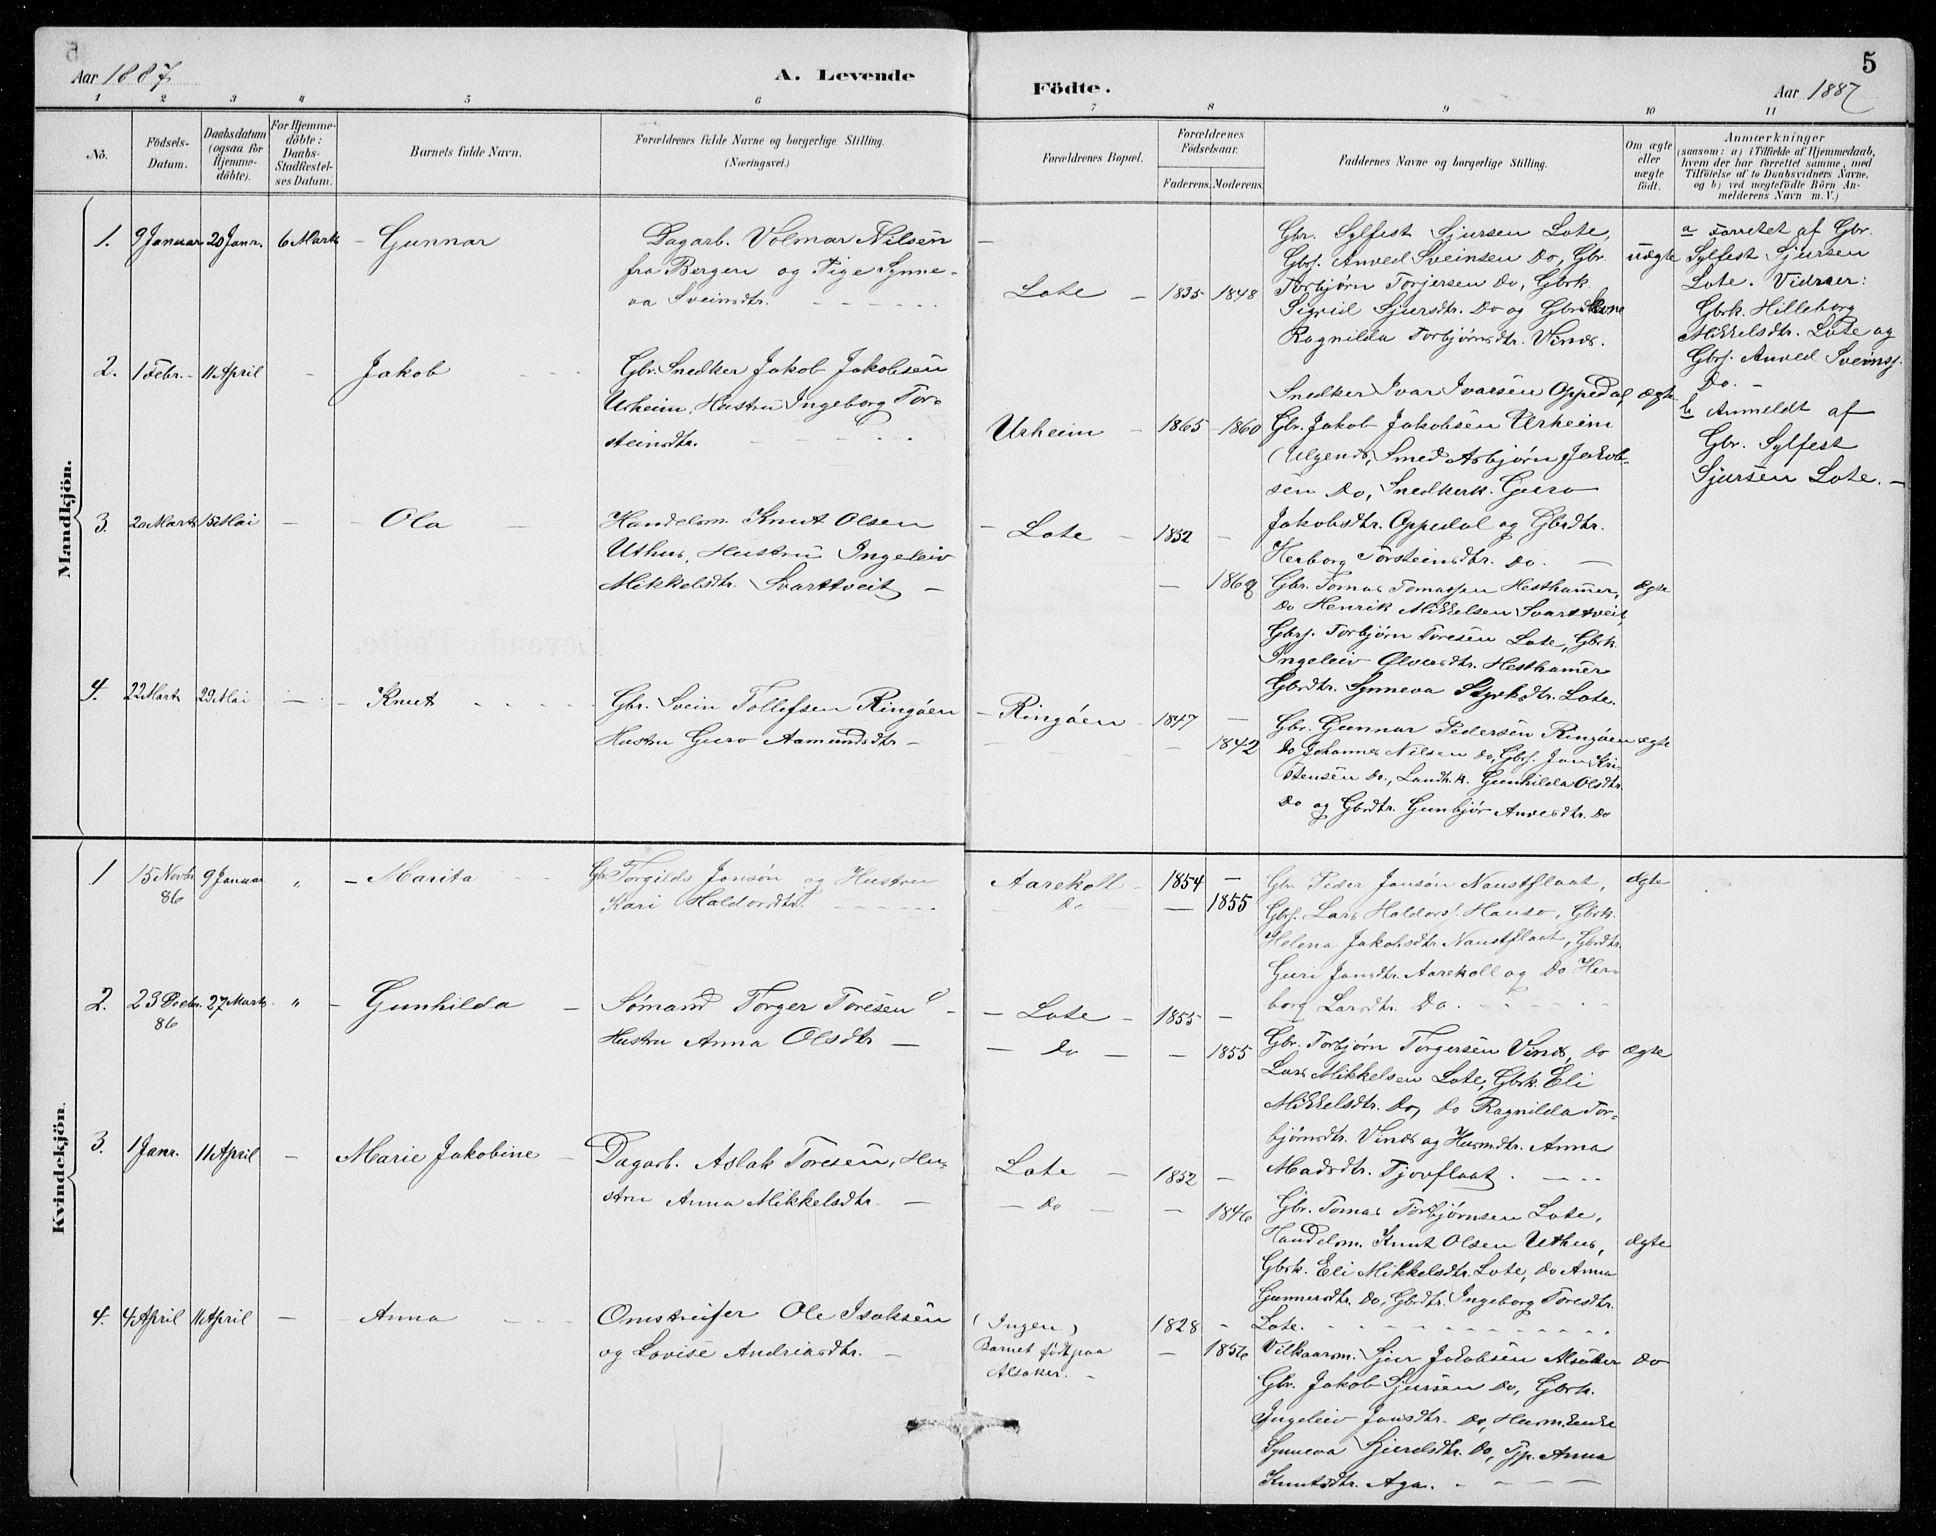 Aar 1887.
A. Levende
Födte.
Aar 1887
5
1 2 3 4 5 6 7 8 9 10 11
Nô.
Födsels-Datum.
Daabsdatum (ogsaa for Hjemme-döbte).
For Hjemme-döbte: Daabs-Stadfæstel-ses Datum.
Barnets fulde Navn.
Forældrenes fulde Navne og borgerlige Stilling. (Næringsvei.)
Forældrenes Bopæl.
Forældrenes Födselsaar.
Faderens. Moderens.
Faddernes Navne og borgerlige Stilling.
Om ægte eller uægte födt.
Anmærkninger
(saasom: a) i Tilfælde af Hjemmedaab, hvem der har forrettet samme, med Tilföielse af to Daabsvidners Navne. og b) ved uægtefödte Börn An-melderens Navn m. V.)
Mandkjön.
1. 9 Januar 20 Janr. 6 Marts - Gunnar
Dagarb. Volmar Nilsen
fra Bergen og Pige Synne-
va Sveinsdtr.
Lote - 1835 - 1848
Gbr. Sylfest Sjursen Lote,
Gbrs. Anved Sveinsen Do, Gbr.
Torbjørn Torjersen Do, Gbrk.
Sigrid Sjursdtr. Do og Gbrdkone
Ragnilda Torbjørnsdtr. Vines.
uægte
a Forretet af Gbr.
Sylfest Sjursen
Lote. Vidner:
Gbrk. Hilleborg
Mikkelsdtr. Lote og
Gbrs. Anved Sveinss.
Do. -
b Anmeldt af
Gbr. Sylfest
Sjursen Lote. -
2. 1 Febr. - 11 April - Jakob
Gbr. Snedker Jakob Jakobsen
Urheim, Hustru Ingeborg Tor-
steinsdtr.
Urheim - 1865 - 1860
Snedker Ivar Ivarsen Oppedal, ægte
Gbr. Jakob Jakobsen Urheim
Ulgenes, Smed Asbjørn Jakob-
sen Do, Snedkerk. Guro
Jakobsdtr. Oppedal og Gbrdtr.
Herborg Torsteinsdtr. Do. -
3. 20 Marts 15 Mai - - Ola -
Handelsm. Knut Olsen
Uthus, Hustru Ingeleiv
Mikkelsdtr. Svarttveit -
- Lote - 1852 -
- 1862
Gbr. Tomas Tomassen Hesthamer, ægte
Do Henrik Mikkelsen Svarttveit,
Gbrs. Torbjørn Toresen Lote, Gbrk.
Ingeleiv Olvesdtr. Hesthamer
Gbrdtr. Synneva Styrksdtr. Lote.
4. 22 Marts 29 Mai - - Knut
Gbr. Svein Tollefsen Ringöen
Hustru Guro Aamundsdtr -
- Ringöen - 1847 -
- 1842
Gbr. Gunnar Pedersen Ringöen ægte
Do Johannes Nilsen Do, Gbrs. Jon Kri-
stensen Do., Landh.k. Gunhilda Olsdtr.
Do og Gbrdtr. Gunbjør Anvedsdtr. Do
Kvindekjön.
1 15 Novbr 86 9 Januar " - Marita
Gbr. Torgilds Jonsön og Hustru
Kari Haldorsdtr.
Aarekoll - 1854 -
Do - 1855
Gbr Peder Jonsön Naustflaat, ægte
Gbrs. Lars Haldors. Hauso, Gbrk.
Helena Jakobsdtr. Naustflaat, Gbrdtr.
Guri Jonsdtr. Aarekoll og Do Her-
borg Larsdtr. Do.
2. 23 Decbr. 86 27 Marts " - Gunhilda -
Sömand Torger Toresen &
Hustru Anna Olsdtr -
- Lote - 1855 -
- Do - - 1855
Gbr. Torbjørn Torgersen Vines, Do ægte
Lars Mikkelsen Lote, Gbrk. Eli
Mikkelsdtr. Do, Do Ragnilda Tor-
bjørnsdtr. Vines og Husmdtr. Anna
Madsdtr. Tjovflaat.
3. 1 Janr. 11 April - Marie Jakobine -
Dagarb. Aslak Toresen, Hu-
stru Anna Mikkelsdtr. -
Lote - 1852 -
- Do - - 1846
Gbr. Tomas Torbjørnsen Lote,
Handelsm. Knut Olsen Uthus, ægte
Gbrk. Eli Mikkelsdtr. Lote, Do Anna
Gunnarsdtr. Do, Gbrdtr. Ingeborg Toresdtr.
Lote.
4. 4 April 11 April - - Anna
Omstreifer Ole Isaksen
og Lovise Andriasdtr. -
(Ingen) 1828 -
Barnet födt paa - 1856
Alsaker. -
Vilkaarsm. Sjur Jakobsen Alsaker Do
Gbr. Jakob Sjursen Do, Gbrk.
Ingeleiv Jonsdtr. Do, Husm.Enke
Synneva Sjurdsdtr. Do, Tjp. Anna
Knutsdtr. Aga.